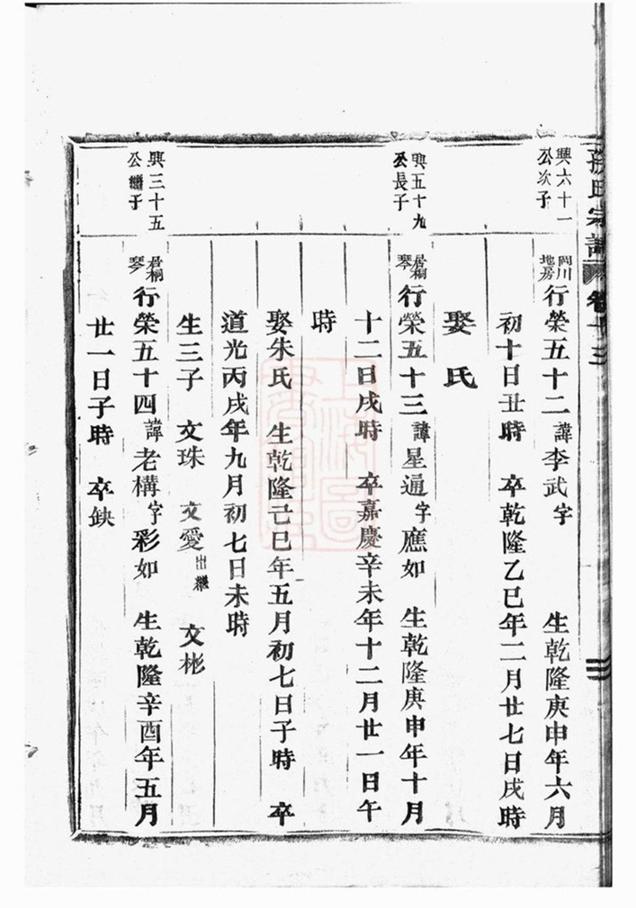 孫氏宗譜 卷十三
興六十一
公次子
岡川
地房
行榮五十二 諱李武 字 生乾隆庚申年六月
初十日丑時 卒乾隆乙巳年二月廿七日戌時
娶 氏
興五十九
公長子
居桐
琴
行榮五十三 諱星通 字應如 生乾隆庚申年十月
十二日戌時 卒嘉慶辛未年十二月廿一日午
時
娶朱氏 生乾隆己巳年五月初七日子時 卒
道光丙戌年九月初七日未時
生三子 文珠 文愛 出繼 文彬
興三十五
公繼子
居桐
琴
行榮五十四 諱老構 字彩如 生乾隆辛酉年五月
廿一日子時 卒缺